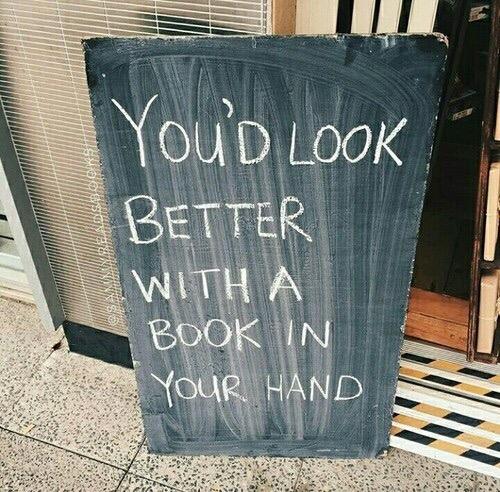 YOU'D LOOK
BETTER
WITH A
BOOK IN
YOUR HAND